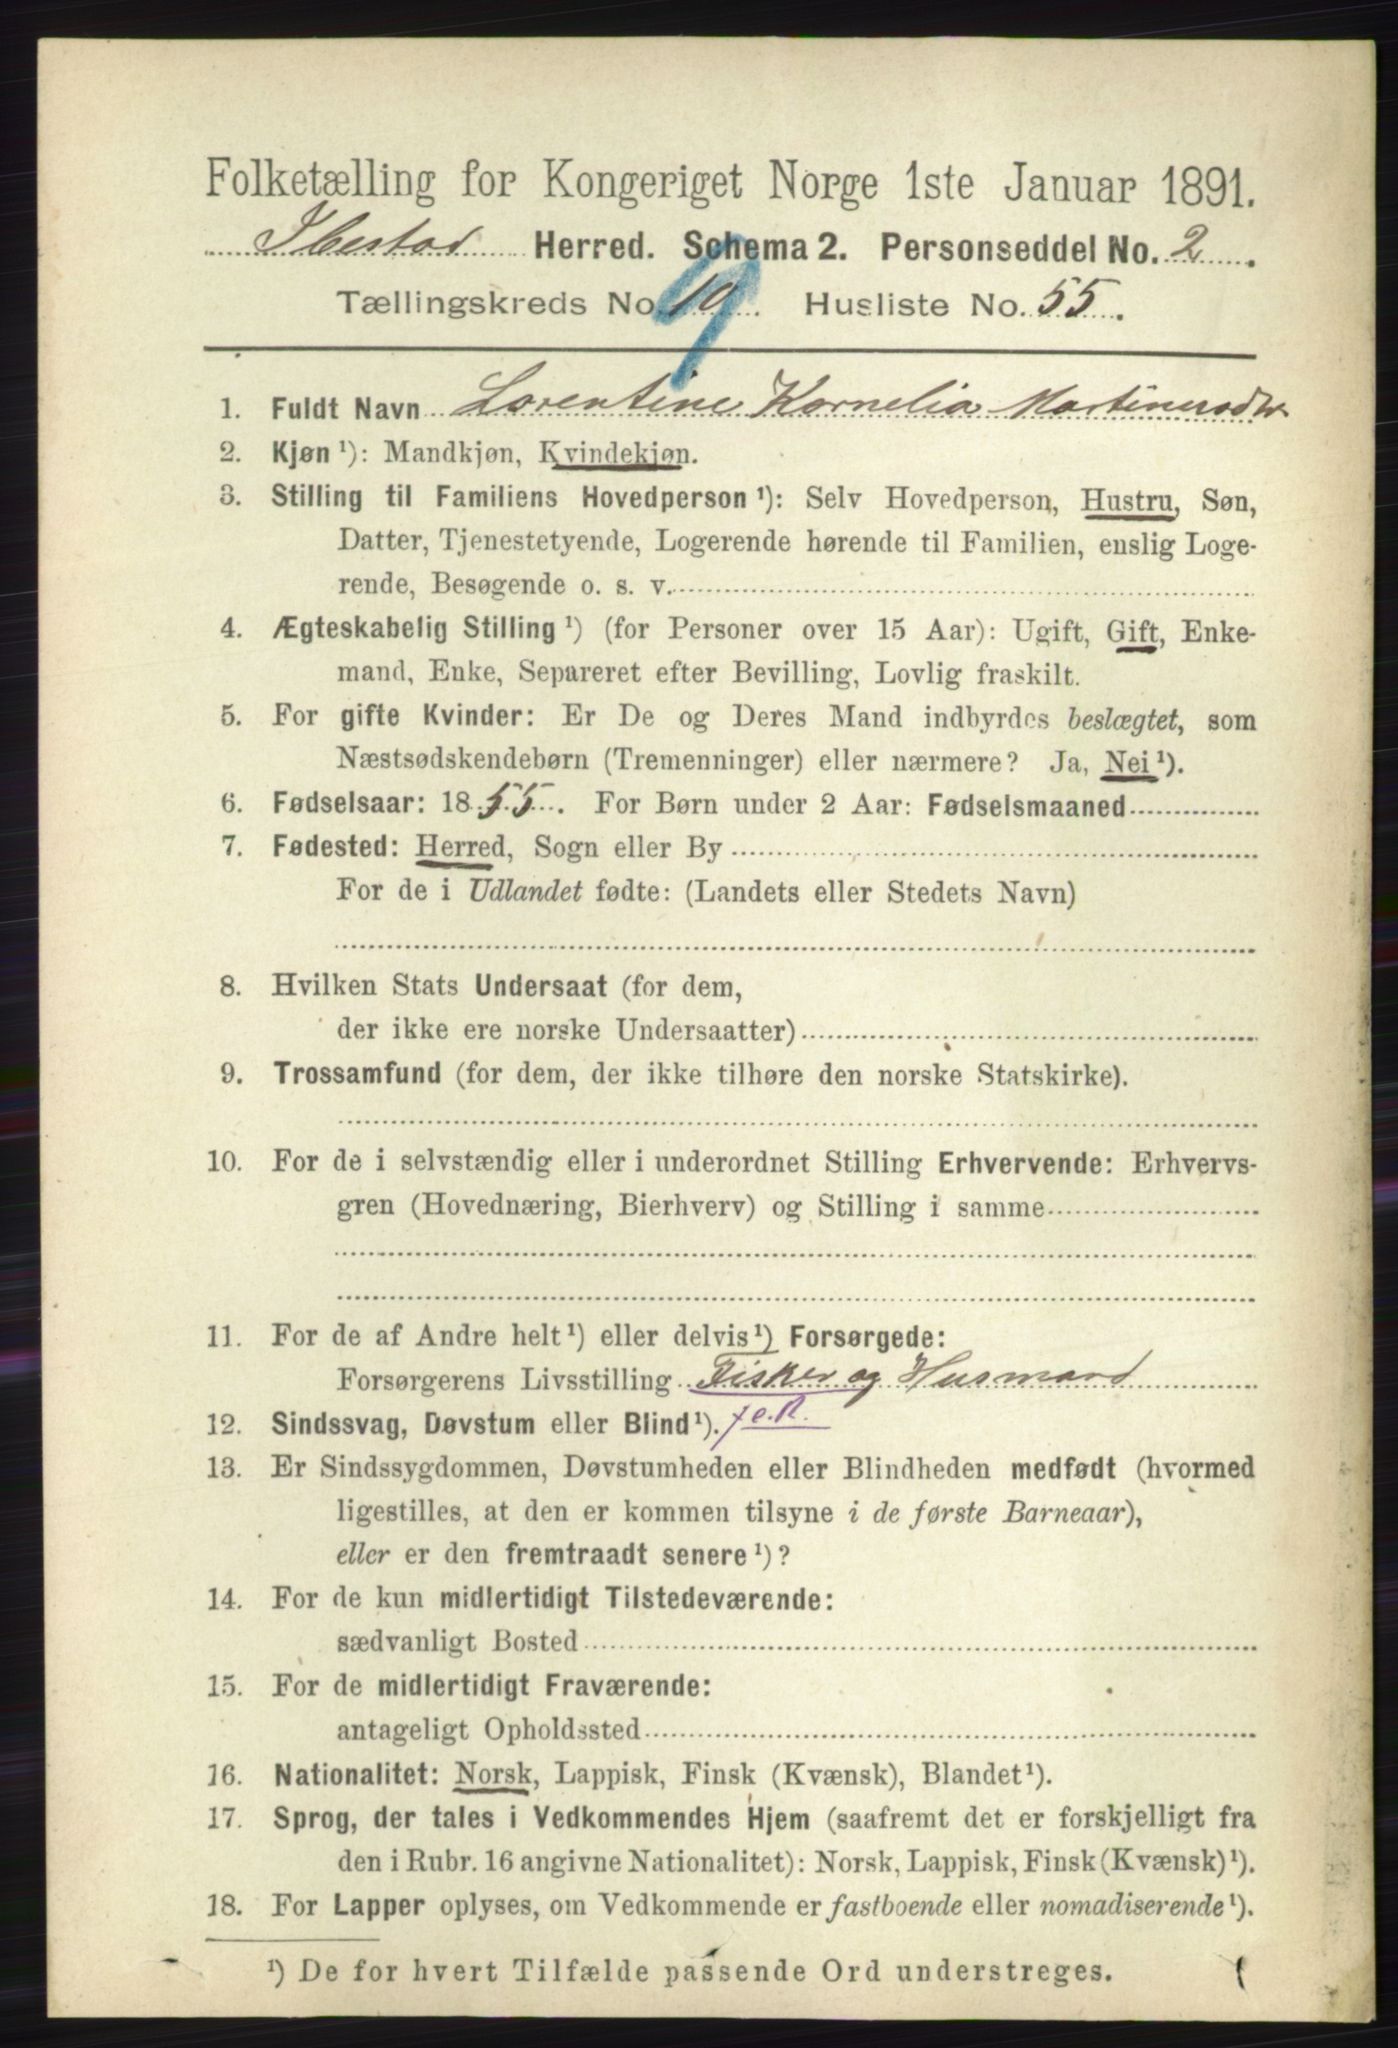 Folketælling for Kongeriget Norge 1ste Januar 1891.
Ibestad Herred. Schema 2. Personseddel No. 2.
Tællingskreds No. 10. Husliste No. 55.
9
1. Fuldt Navn Lorentine Kornelia Martinusdtr
2. Kjøn ¹): Mandkjøn, Kvindekjøn.
3. Stilling til Familiens Hovedperson ¹): Selv Hovedperson, Hustru, Søn,
Datter, Tjenestetyende, Logerende hørende til Familien, enslig Loge-
rende, Besøgende o. s. v.
4. Ægteskabelig Stilling ¹) (for Personer over 15 Aar): Ugift, Gift, Enke-
mand, Enke, Separeret efter Bevilling, Lovlig fraskilt.
5. For gifte Kvinder: Er De og Deres Mand indbyrdes beslægtet, som
Næstsødskendebørn (Tremenninger) eller nærmere? Ja, Nei ¹).
6. Fødselsaar: 1855. For Børn under 2 Aar: Fødselsmaaned
7. Fødested: Herred, Sogn eller By
For de i Udlandet fødte: (Landets eller Stedets Navn)
8. Hvilken Stats Undersaat (for dem,
der ikke ere norske Undersaatter)
9. Trossamfund (for dem, der ikke tilhøre den norske Statskirke).
10. For de i selvstændig eller i underordnet Stilling Erhvervende: Erhvervs-
gren (Hovednæring, Bierhverv) og Stilling i samme
11. For de af Andre helt ¹) eller delvis ¹) Forsørgede:
Forsørgerens Livsstilling Fisker og Husmand
12. Sindssvag, Døvstum eller Blind ¹).
13. Er Sindssygdommen, Døvstumheden eller Blindheden medfødt (hvormed
ligestilles, at den er kommen tilsyne i de første Barneaar),
eller er den fremtraadt senere ¹)?
14. For de kun midlertidigt Tilstedeværende:
sædvanligt Bosted
15. For de midlertidigt Fraværende:
antageligt Opholdssted
16. Nationalitet: Norsk, Lappisk, Finsk (Kvænsk), Blandet ¹).
17. Sprog, der tales i Vedkommendes Hjem (saafremt det er forskjelligt fra
den i Rubr. 16 angivne Nationalitet): Norsk, Lappisk, Finsk (Kvænsk) ¹).
18. For Lapper oplyses, om Vedkommende er fastboende eller nomadiserende ¹).
¹) De for hvert Tilfælde passende Ord understreges.